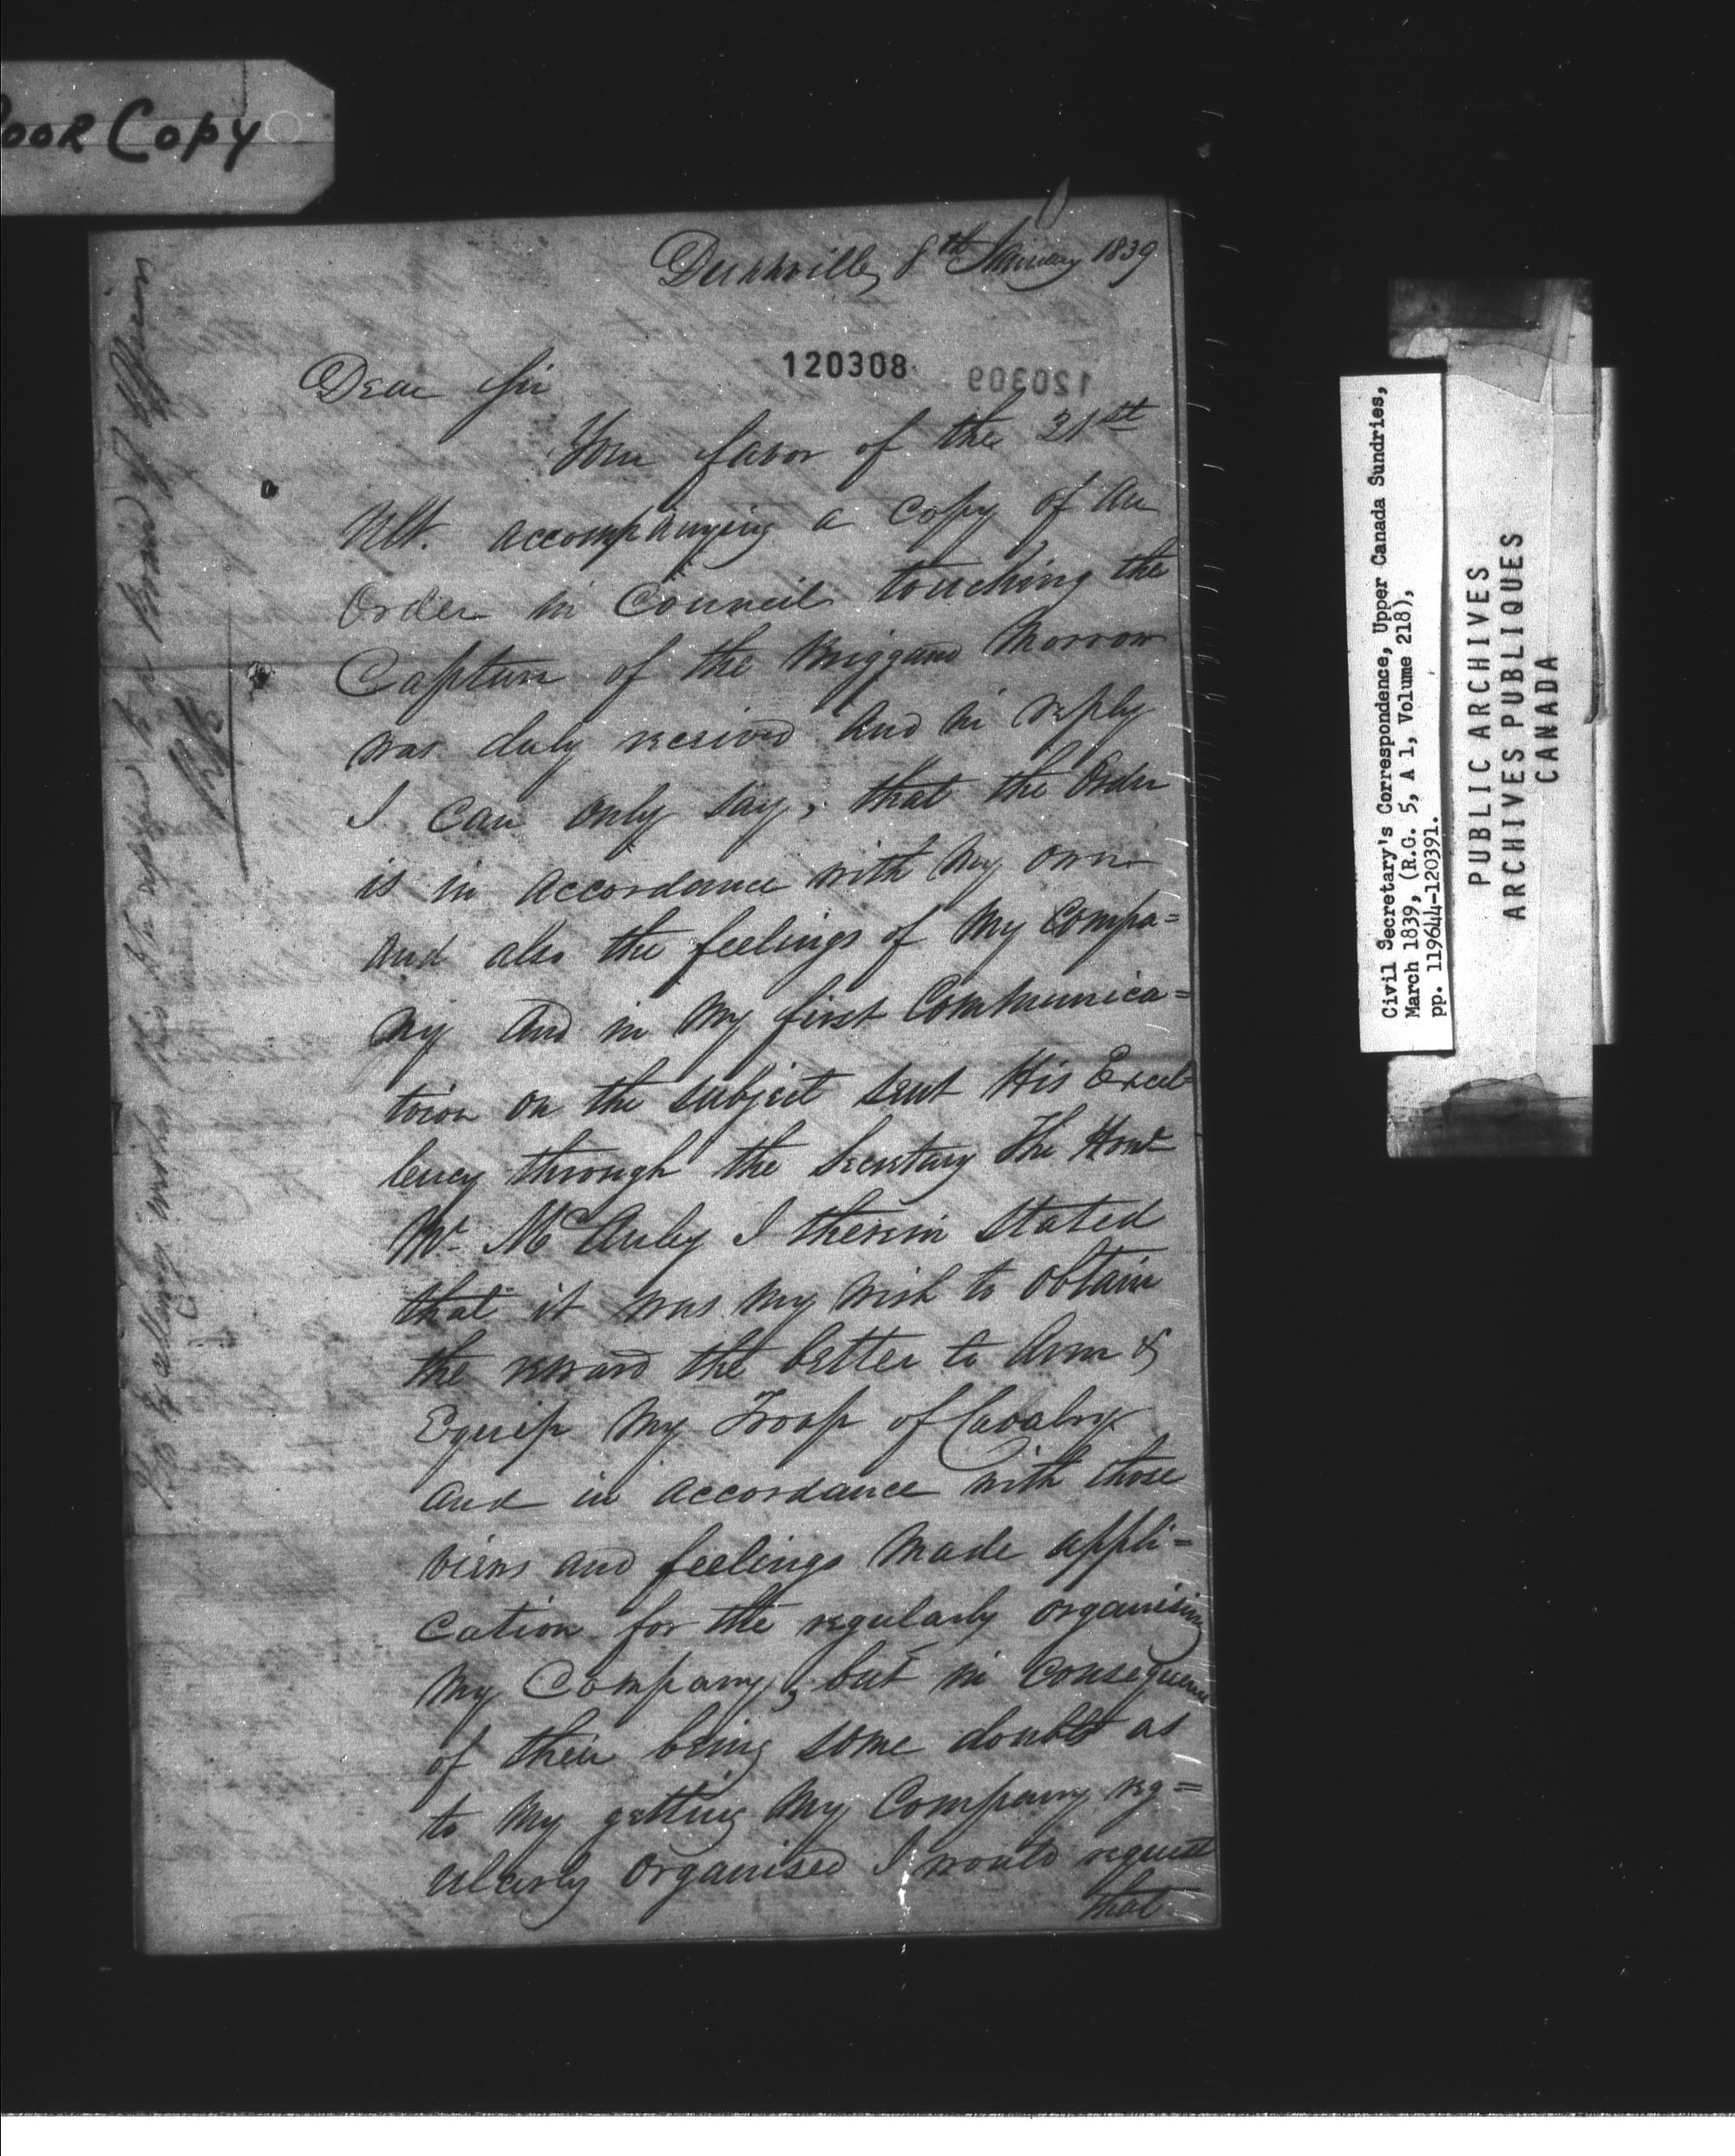 Poor Copy
Dunnville 8th January 1839
120308
120309
Dear Sir
Your favor of the 21st
Ult. accompanying a copy of an
Order in Council touching the
Capture of the Briggand Morrow
was duly received and in reply
I can only say, that the Order
is in accordance with my own
and also the feelings of my Compa=
ny and in my first Communica=
tion on the subject sent His Excel=
lency through the Secretary The Honl
Mr. McAuley I therein stated
that it was my wish to obtain
the reward the better to Arm &
Equip my Troop of Cavalry
and in accordance with those
views and feelings made appli=
cation for the regularly organising
my Company, but in consequence
of their being some doubt as
to my getting my Company reg=
ularly organised I would request
that
His Excellency wishes this to be referred to a Board of Officers
Civil Secretary's Correspondence, Upper Canada Sundries,
March 1839, (R.G. 5, A 1, Volume 218),
pp. 119644-120391.
PUBLIC ARCHIVES
ARCHIVES PUBLIQUES
CANADA